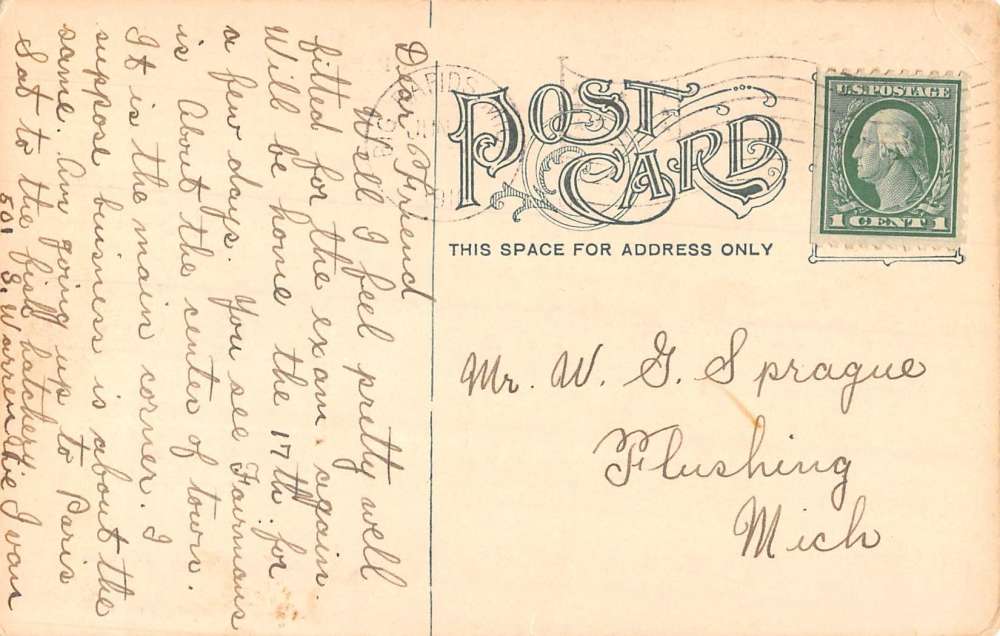 Dear Friend
Well I feel pretty well
fitted for the exam. again.
Will be home the 17th for
a few days. You see Fairmans
is about the center of town.
It is the main corner. I
suppose business is about the
same. Am going up to Paris
Sat to the fish hatchery
501 S. Warren Ave Ivan
RAPIDS
POST CARD
THIS SPACE FOR ADDRESS ONLY
U.S. POSTAGE
1 CENT 1
Mr. W. G. Sprague
Flushing
Mich